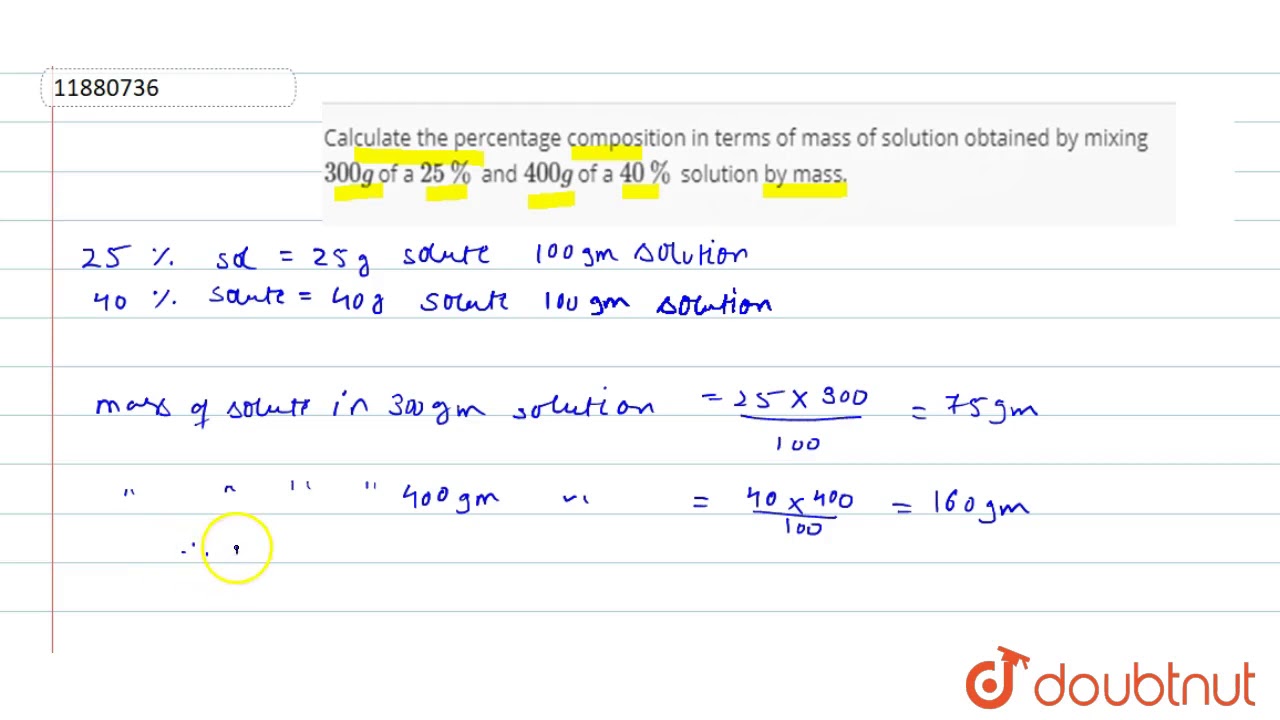 11880736
Calculate the percentage composition in terms of mass of solution obtained by mixing
300g of a 25 % and 400g of a 40 % solution by mass.
25 % sol = 25g solute 100 gm solution
40 % solute = 40g solute 100 gm solution
mass of solute in 300 gm solution = 25 × 300 / 100 = 75 gm
" " " " 400 gm " = 40 × 400 / 100 = 160 gm
∴
doubtnut